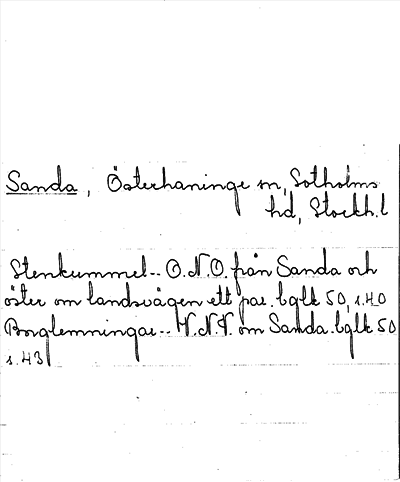 Sanda, Österhaninge sn, Sotholms
hd, Stockh.l
Stenkummel-- O.N.O. från Sanda och
öster om landsvägen ett par. bglk 50, s.40
Borglemningar-- V.N.V. om Sanda. bglk 50
s.43